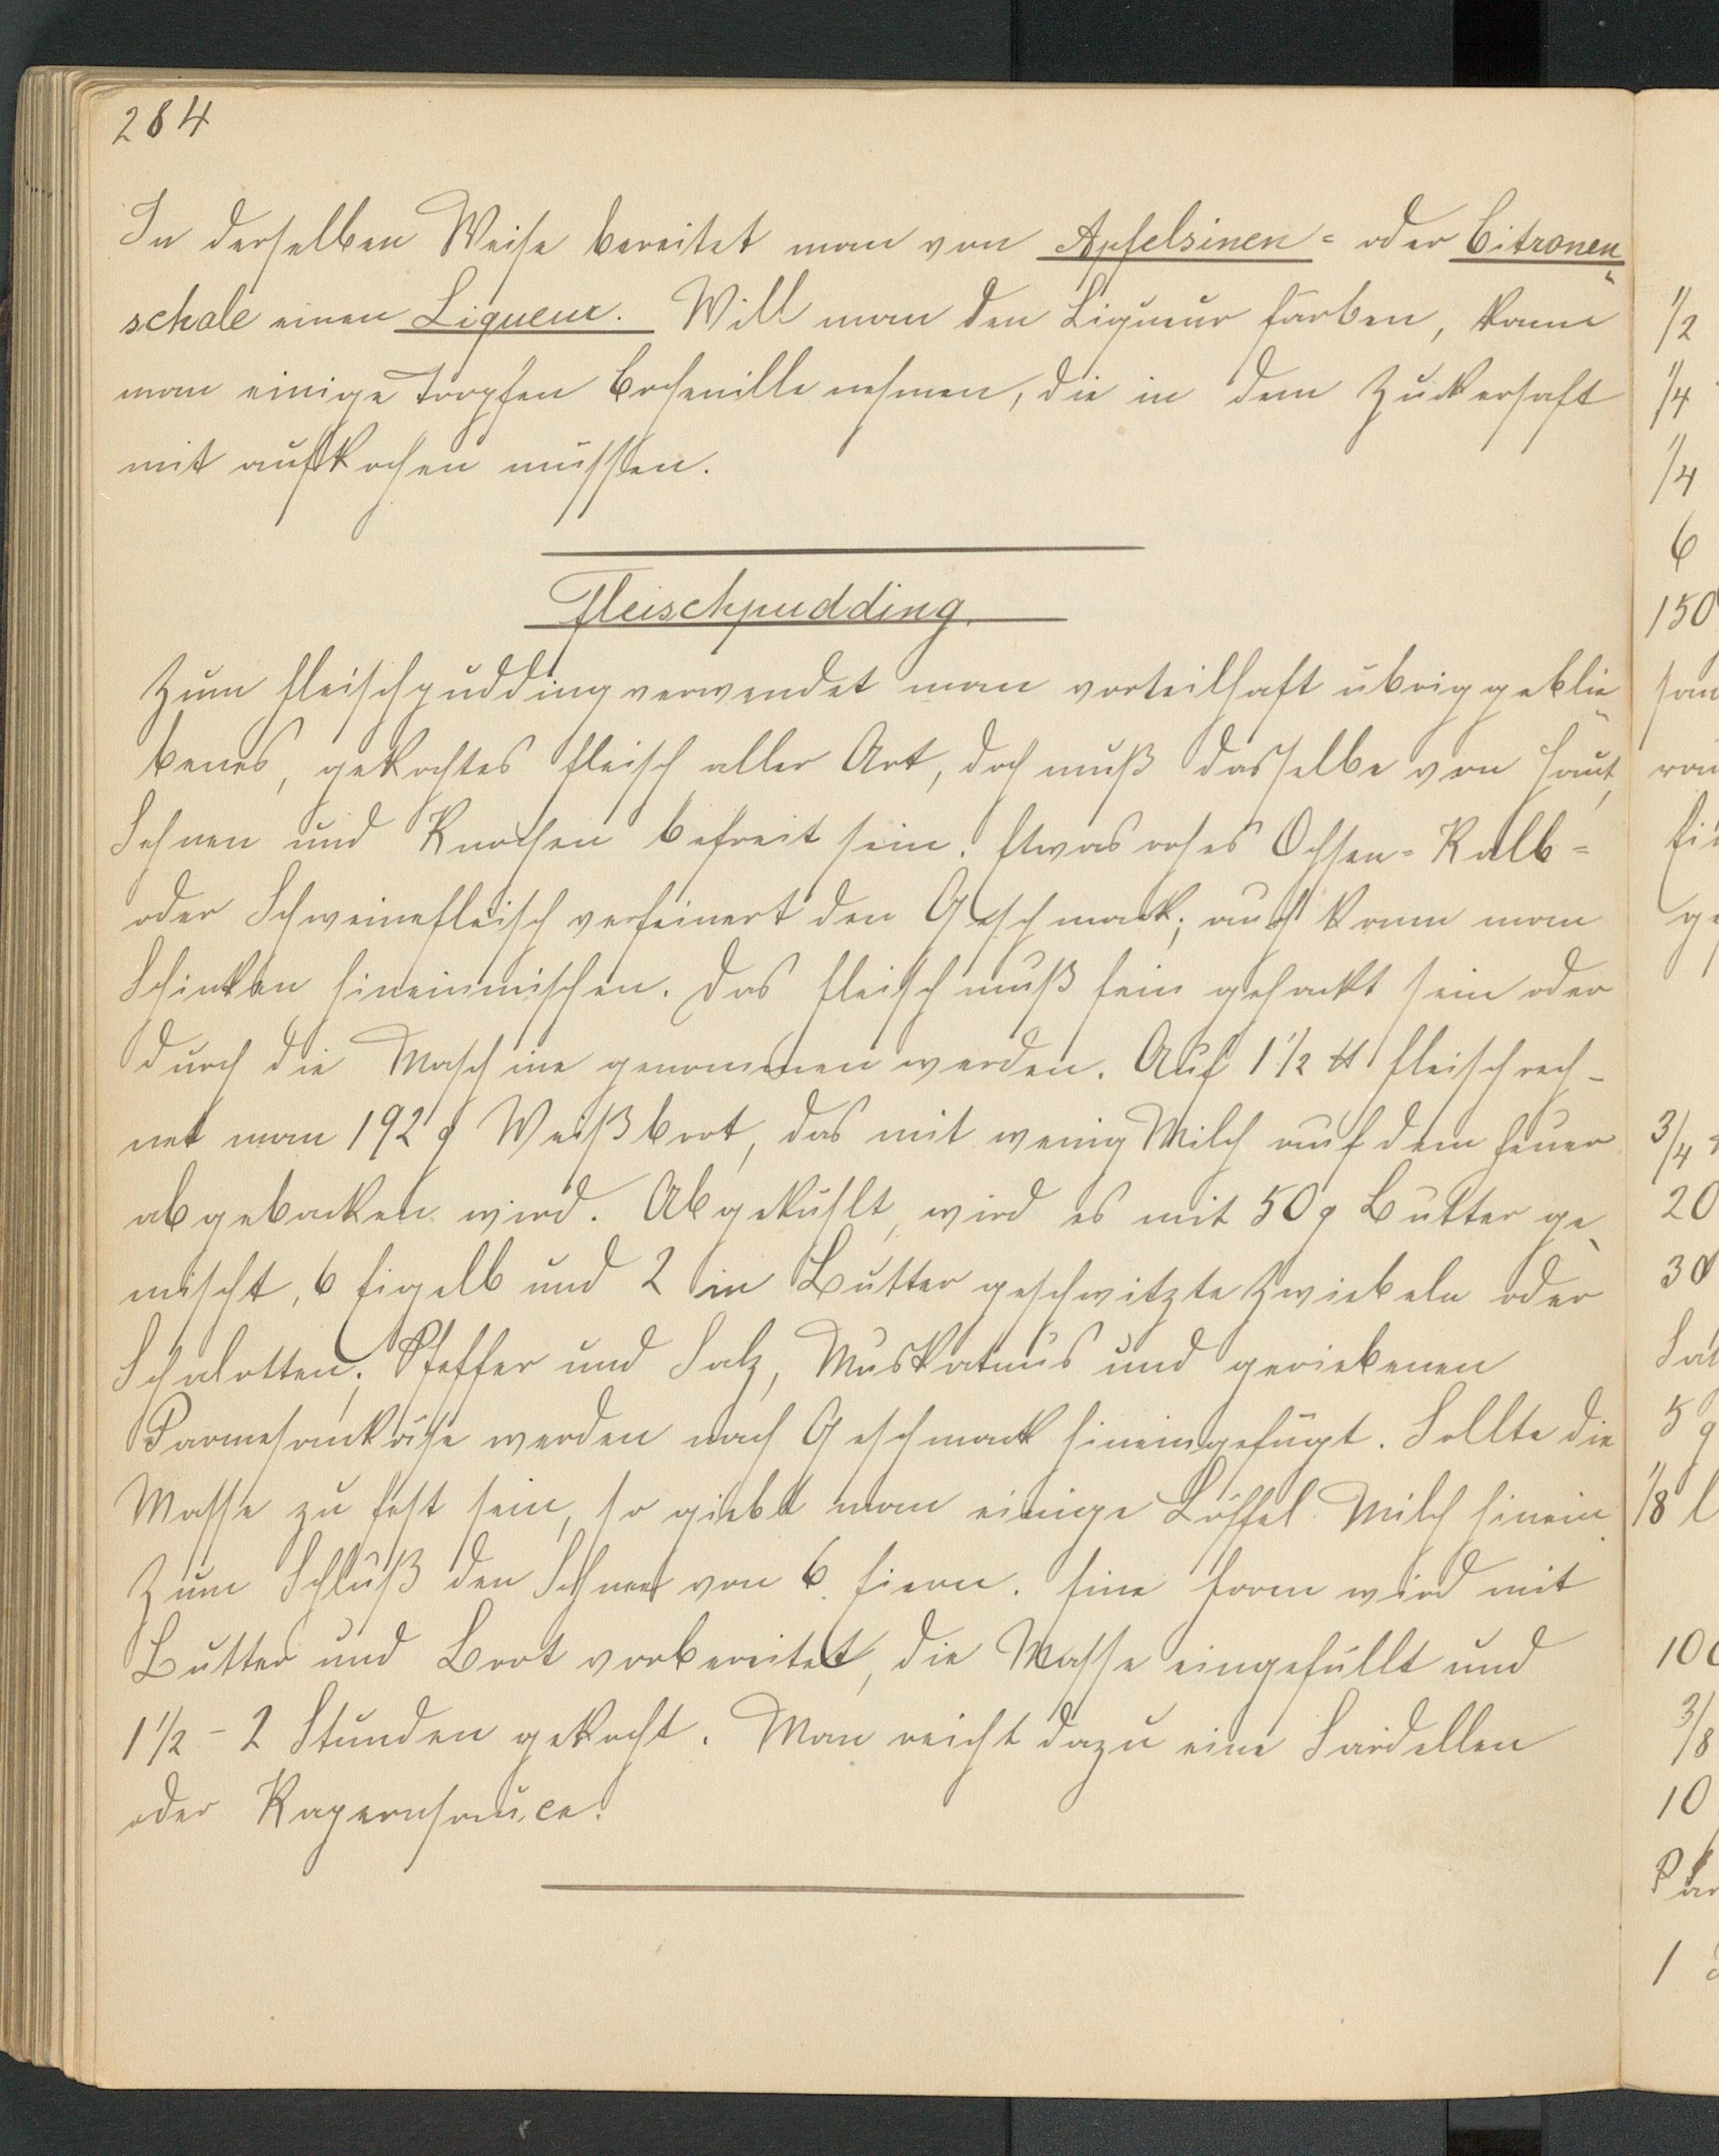 284
In derselben Weise bereitet man von Apfelsinen= oder Citronen=
schale einen Liqueur. Will man den Liqueur färben, kann
man einige Tropfen Cochenille nehmen, die in dem Zuckersaft
mit aufkochen müssen.
Fleischpudding.
Zum Fleischpudding verwendet man vorteilhaft übriggeblie=
benes, gekochtes Fleisch aller Art, doch muß dasselbe von Haut,
Sehnen und Knochen befreit sein. Etwas rohes Ochsen= Kalb=
oder Schweinefleisch verfeinert den Geschmack; auch kann man
Schinken hineinmischen. Das Fleisch muß fein gehackt sein oder
durch die Maschine genommen werden. Auf 1 1/2 ℔ Fleisch rech-
net man 192 g Weißbrot, das mit wenig Milch auf dem Feuer
abgebacken wird. Abgekühlt, wird es mit 50 g Butter ge=
mischt, 6 Eigelb und 2 in Butter geschwitzte Zwiebeln oder
Schalotten; Pfeffer und Salz, Muskatnus und geriebenen
Parmesankäse werden nach Geschmack hineingefügt. Sollte die
Masse zu fest sein, so giebt man einige Löffel Milch hinein.
Zum Schluß den Schnee von 6 Eiern. Eine Form wird mit
Butter und Brot vorbereitet, die Masse eingefüllt und
1 1/2 - 2 Stunden gekocht. Man reicht dazu eine Sardellen
oder Kapernsauce.
1/2
1/4
1/4
6
150
3/4
20
30
5 g
1/8 l
100
3/8
10
1